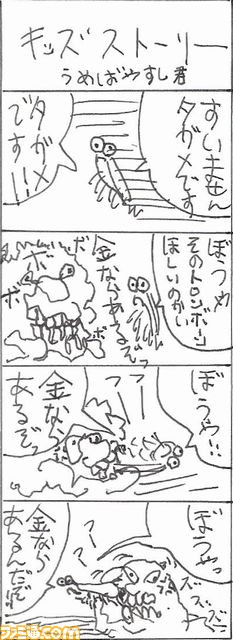 キッズストーリー
うめばやすし君
すいません
タガメです
タガメ
です!!
ぼうつめ
そのトロンボーン
ほしいのかい
金ならあるぞっ
ボ
ボ
ボ
ボ
ぼうや!!
フー
金なら
あるぞっ
ぼうやっ
ズズズ
フーフー
金なら
あるんだぜ
ファミ通.com